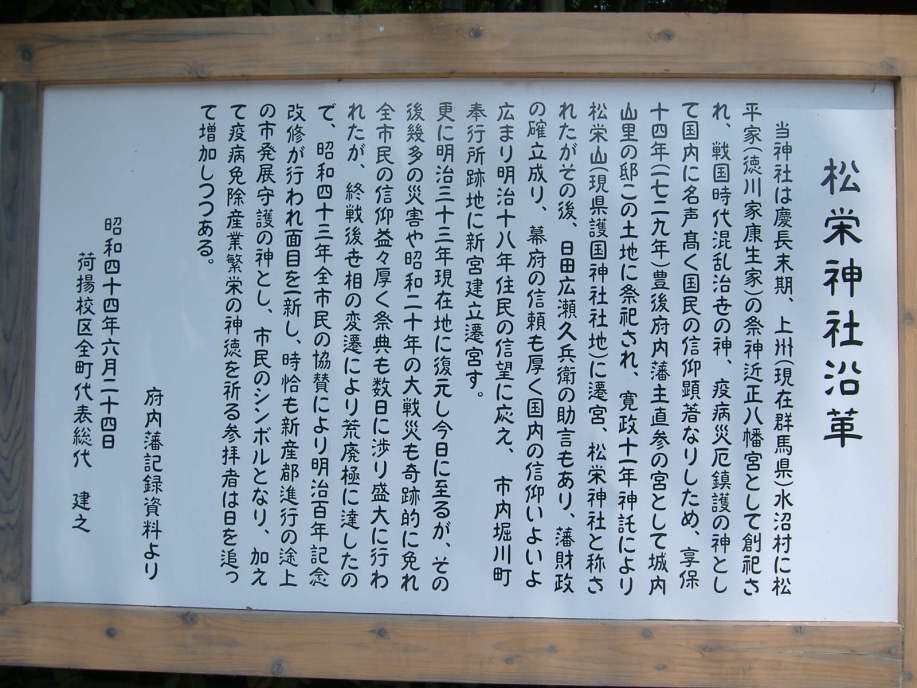 松栄神社沿革
当神社は慶長末期、上州(現在群馬県)水沼村に松
平家(徳川家康生家)の祭神近正八幡宮として創祀さ
れ、戦国時代混乱治世の神、疫病災厄鎮護の神とし
て国内に名声高く国民の信仰顕著なりしため、享保
十四年(一七二九年)豊後府内藩主直参の宮として城内
山里の邸この土地に祭祀され、寛政十一年神託により
松栄山(現県護国神社社地)に遷宮、松栄神社と称さ
れたがその後、日田広瀬久兵衛の助言もあり、藩財政
の確立成り、幕府の信頼も厚く国内の信仰いよいよ
広まり明治十八年住民の信望に応え、市内堀川町
奉行所跡地に新宮建立遷宮す。
更に明治三十三年現在地に復元し今日に至るが、その
後幾多の災害や昭和二十年の大戦災も奇跡的に免れ
全市民の信仰益々厚く祭典も数日に渉り盛大に行わ
れたが、終戦後世相の変遷により荒廃極に達したの
で、昭和四十三年全市民の協賛により明治百年記念
改修が行われ面目を一新し、時恰も新産都進行の途上
の市発展守護の神とし、市民のシンボルとなり、加え
て疫病免除産業繁栄の神徳を祈る参拝者は日を追っ
て増加しつつある。
府内藩記録資料より
昭和四十四年六月二十四日
荷揚校区全町代表総代 建之